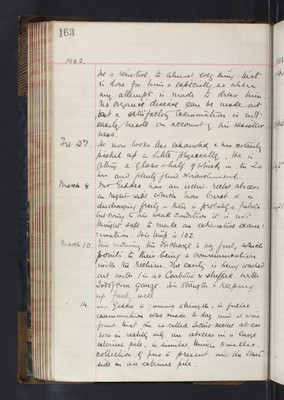 163
1902.
He is resistive to almost every thing that
is done for him & especially so when
any attempt is made to dress him
No organic disease can be made out
but a satisfactory examination is not
easily made on account of his resistive
ness.
Feb. 27. He now looks less exhausted & has certainly
picked up a little physically. He is
getting a glass & half of in 24
hrs and plenty fluid nourishment.
March 8 Mr Geddes has an ischio-rectal abscess
on right side which has burst & is
discharging freely – there is probably a fistula
but owing to his weak condition it is not
thought safe to make an exhaustive exam-
ination. His temp is 102.
March 10. This morning the discharge is very foul, which
points to there being a communication
with the Rectum. The cavity is being washed
out with 1 in 40 Carbolic & stuffed with
Iodoform gauze. His strength is keeping
up fairly well
14 Mr Geddes is gaining strength. A further
examination was made to day and it was
found that the so-called Ischio rectal abscess
was in reality only an abscess in a large
external pile. A similar though smaller
collection of pus is present on the other
side in an external pile